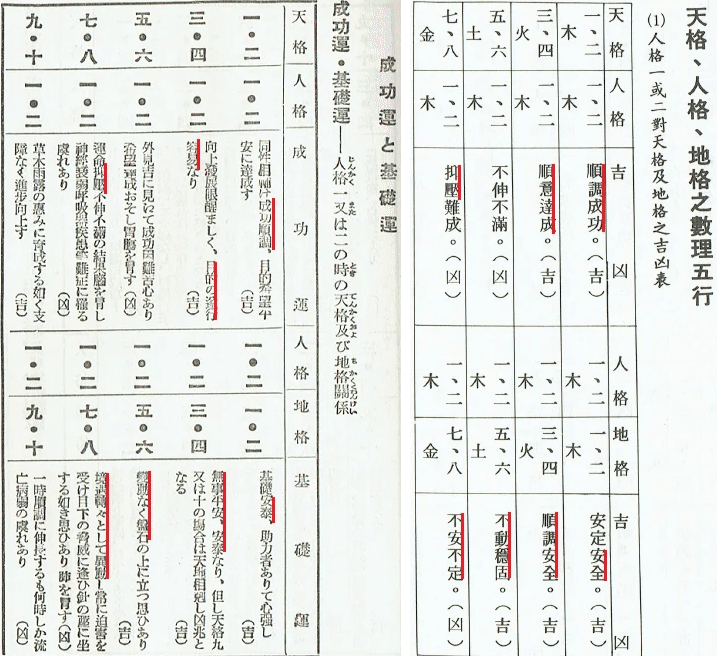 天格、人格、地格之數理五行
(1)人格一或二對天格及地格之吉凶表
天格 人格 吉 凶 人格 地格 吉 凶
一、二 木 一、二 木 順調成功。(吉) 一、二 木 一、二 木 安定安全。(吉)
三、四 火 一、二 木 順意達成。(吉) 一、二 木 三、四 火 順調安全。(吉)
五、六 土 一、二 木 不伸不滿。(凶) 一、二 木 五、六 土 不動穩固。(吉)
七、八 金 一、二 木 抑壓難成。(凶) 一、二 木 七、八 金 不安不定。(凶)
成功運と基礎運
成功運・基礎運——人格一又は二の時の天格及び地格關係
天格 人格 成功運 人格 地格 基礎運
一・二 一・二
同性相輔け成功順調、目的希望平
安に達成す (吉)
一・二 一・二
基礎安泰、助力者ありて心強し
(吉)
三・四 一・二
向上發展眼醒ましく、目的の達行
容易なり (吉)
一・二 三・四
無事平安、安泰なり、但し天格九
又は十の場合は天地相剋し凶兆と
なる (吉)
五・六 一・二
外見吉に見いて成功困難苦心あり
希望達成おそし胃膓を冒す (凶)
一・二 五・六
變動なく盤石の上に立つ思ひあり
(吉)
七・八 一・二
運命抑壓不伸不滿の結果腦を冒し
神經衰弱呼吸器疾患等難症に罹る
虞れあり (凶)
一・二 七・八
境遇轉々として異動し常に迫害を
受け目下の脅威に逢ひ針の莚に坐
する如き思ひあり 肺を冒す (凶)
九・十 一・二
草木雨露の惠みに育成する如く支
障なく進步向上す (吉)
一・二 九・十
一時順調に伸長するも何時しか流
亡病弱の虞れあり (凶)